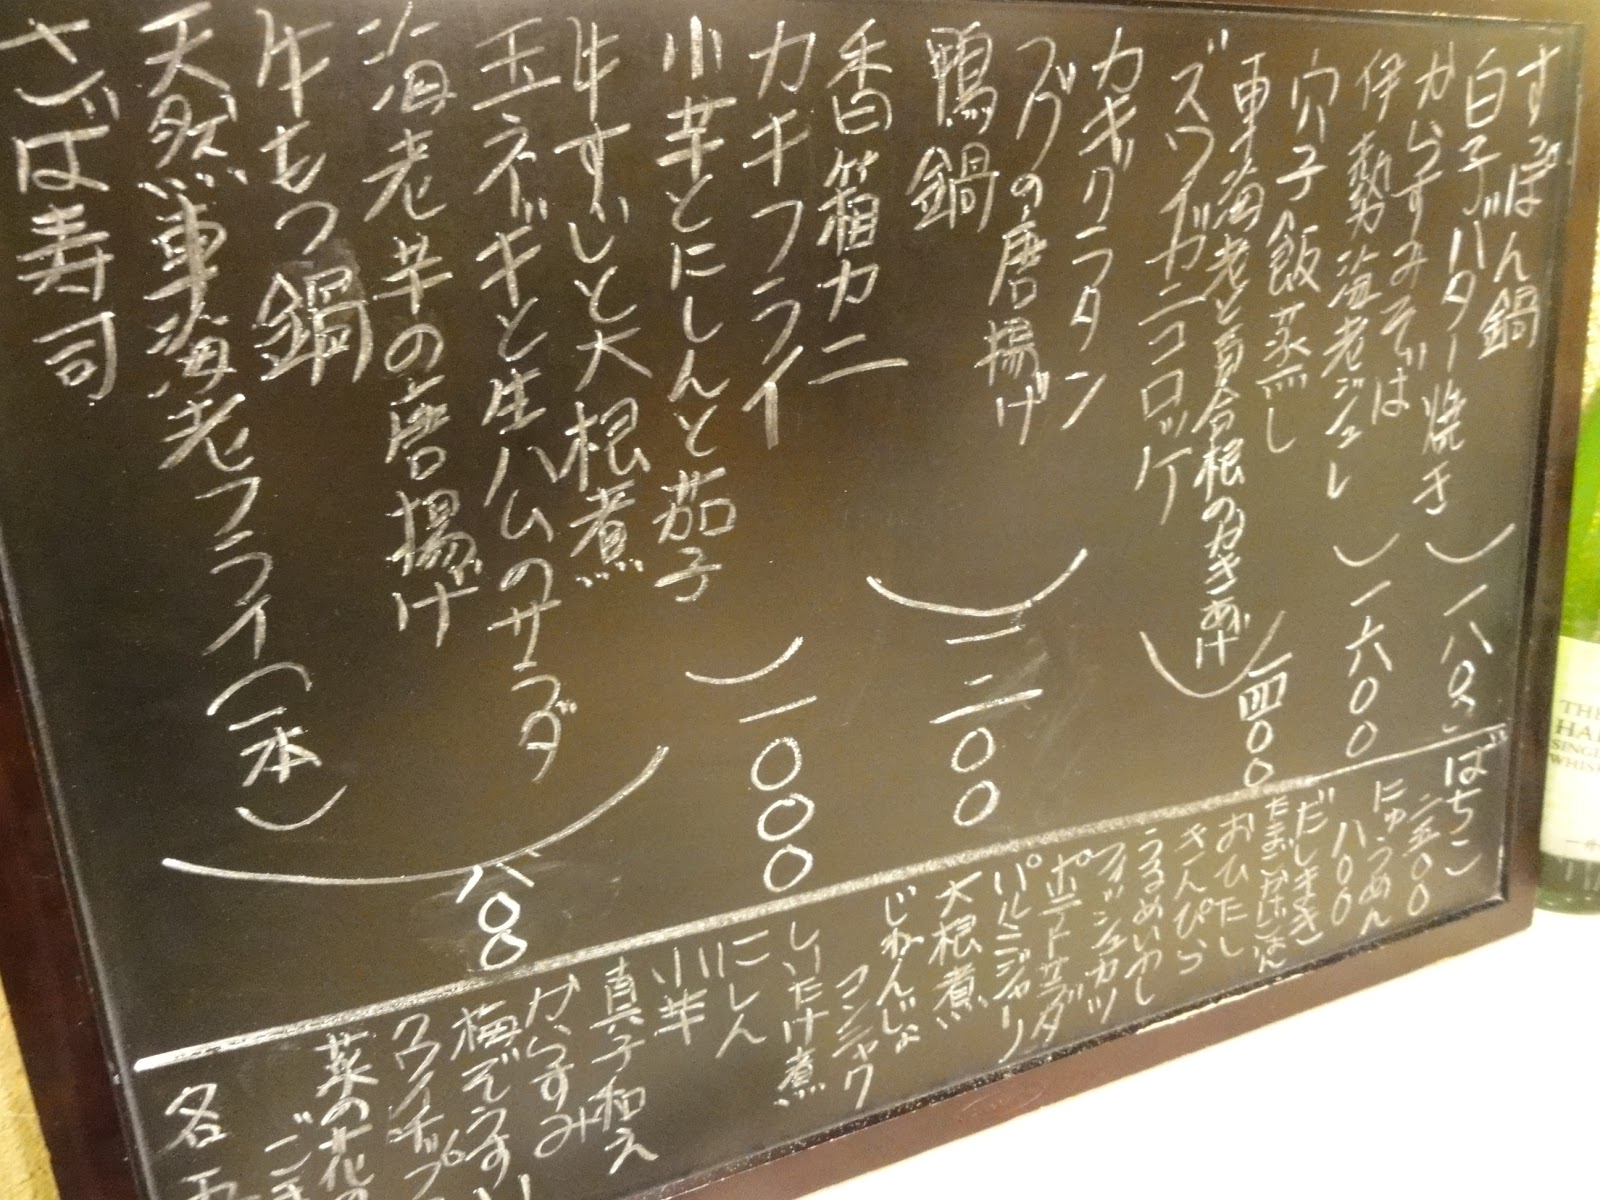 すっぽん鍋
白子バター焼き
一八〇〇
からすみそば
伊勢海老ジュレ
一六〇〇
穴子飯蒸し
車海老と百合根のかきあげ
ズワイガニコロッケ
一四〇〇
カキグラタン
フグの唐揚げ
鴨鍋
一二〇〇
香箱カニ
カキフライ
小芋とにしんと茄子
一〇〇〇
牛すじと大根煮
玉ネギと生ハムのサラダ
海老芋の唐揚げ
牛もつ鍋
天然車海老フライ(一本)
八〇〇
さば寿司
ばちこ
二五〇〇
にゅうめん
八〇〇
だしまき
たまごかけごはん
おひたし
きんぴら
うるめいわし
フィッシュカツ
ポテトサラダ
パルミジャーノ
大根煮
じねんじょ
コンニャク
しいたけ煮
にしん
小芋
真子和え
からすみ
梅ぞうすい
クワイチップ
菜の花の
ごま
各五
THE
HA
SINGL
WHISK